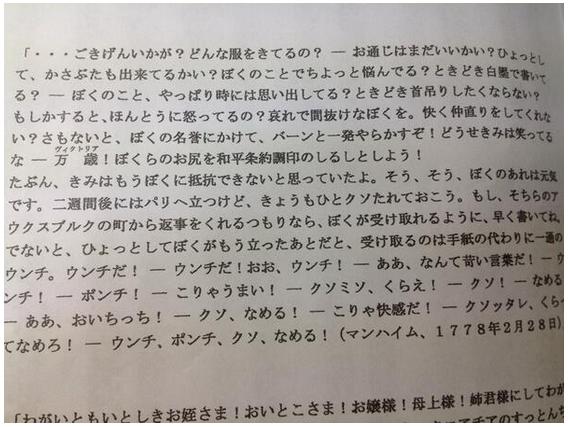 「・・・ごきげんいかが?どんな服をきてるの? ― お通じはまだいいかい?ひょっとし
て、かさぶたも出来てるかい?ぼくのことでちょっと悩んでる?ときどき白墨で書いて
る? ― ぼくのこと、やっぱり時には思い出してる?ときどき首吊りしたくならない?
もしかすると、ほんとうに怒ってるの?哀れで間抜けなぼくを。快く仲直りをしてくれな
い?さもないと、ぼくの名誉にかけて、バーンと一発やらかすぞ!どうせきみは笑ってる
ヴィクトリア
な ― 万 歳!ぼくらのお尻を和平条約調印のしるしとしよう!
たぶん、きみはもうぼくに抵抗できないと思っていたよ。そう、そう、ぼくのあれは元気
です。二週間後にはパリへ立つけど、きょうもひとクソたれておこう。もし、そちらのア
ウクスブルクの町から返事をくれるつもりなら、ぼくが受け取れるように、早く書いてね。
でないと、ひょっとしてぼくがもう立ったあとだと、受け取るのは手紙の代わりに一通の
ウンチ。ウンチだ! ― ウンチだ!おお、ウンチ! ― ああ、なんて苛い言葉だ! ― ウ
ンチ! ― ポンチ! ― こりゃうまい! ― クソミソ、くらえ! ― クソ! ― なめる
― ああ、おいちっち! ― クソ、なめる! ― こりゃ快感だ! ― クソッタレ、くら
てなめろ! ― ウンチ、ポンチ、クソ、なめる!(マンハイム、1778年2月28日)
「わがいともいとしきお姪さま!おいとこさま!お嬢様!母上様!姉君様にしてわが